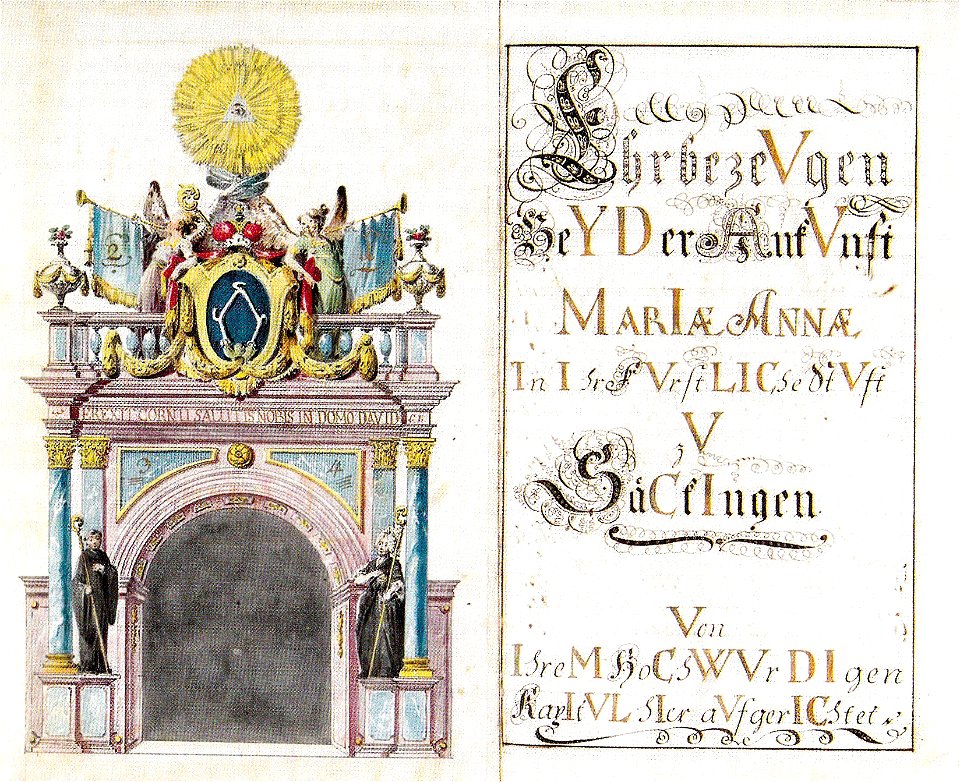 2
V
EREXIT CORNU SALUTIS NOBIS IN DOMO DAVID
3
4
EhrbezeVgen
BeYDer AnkVnft
MARIÆ ANNÆ
In Ihr FVrstLICHe StVft
zV
SäCkIngen
Von
IhreM HoChWVrDIgen
KapItVL hIer aVfgerIChtet